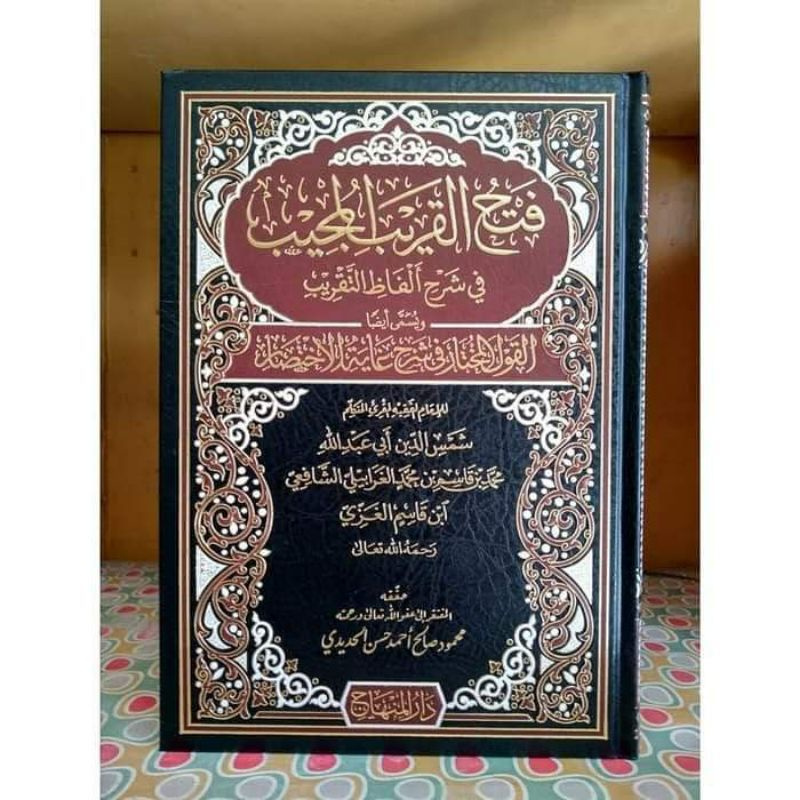 فَتْحُ القَرِيبِ المُجِيبِ
في شَرْحِ أَلْفَاظِ التَّقْرِيبِ
ويُسَمَّى أَيْضًا
القَوْلُ المُخْتَارُ فِي شَرْحِ غَايَةِ الاخْتِصَارِ
للإمام الفقيه المقرئ المتكلم
شَمْسِ الدِّينِ أَبِي عَبْدِ اللهِ
مُحَمَّدِ بْنِ قَاسِمِ بْنِ مُحَمَّدٍ الغَرَابِيلِيِّ الشَّافِعِيِّ
ابْنِ قَاسِمٍ الغَزِّيِّ
رَحِمَهُ اللهُ تَعَالَى
حققه
المفتقر إلى عفو الله تعالى ورحمته
محمود صالح أحمد حسن الحديدي
دَارُ المِنْهَاجِ